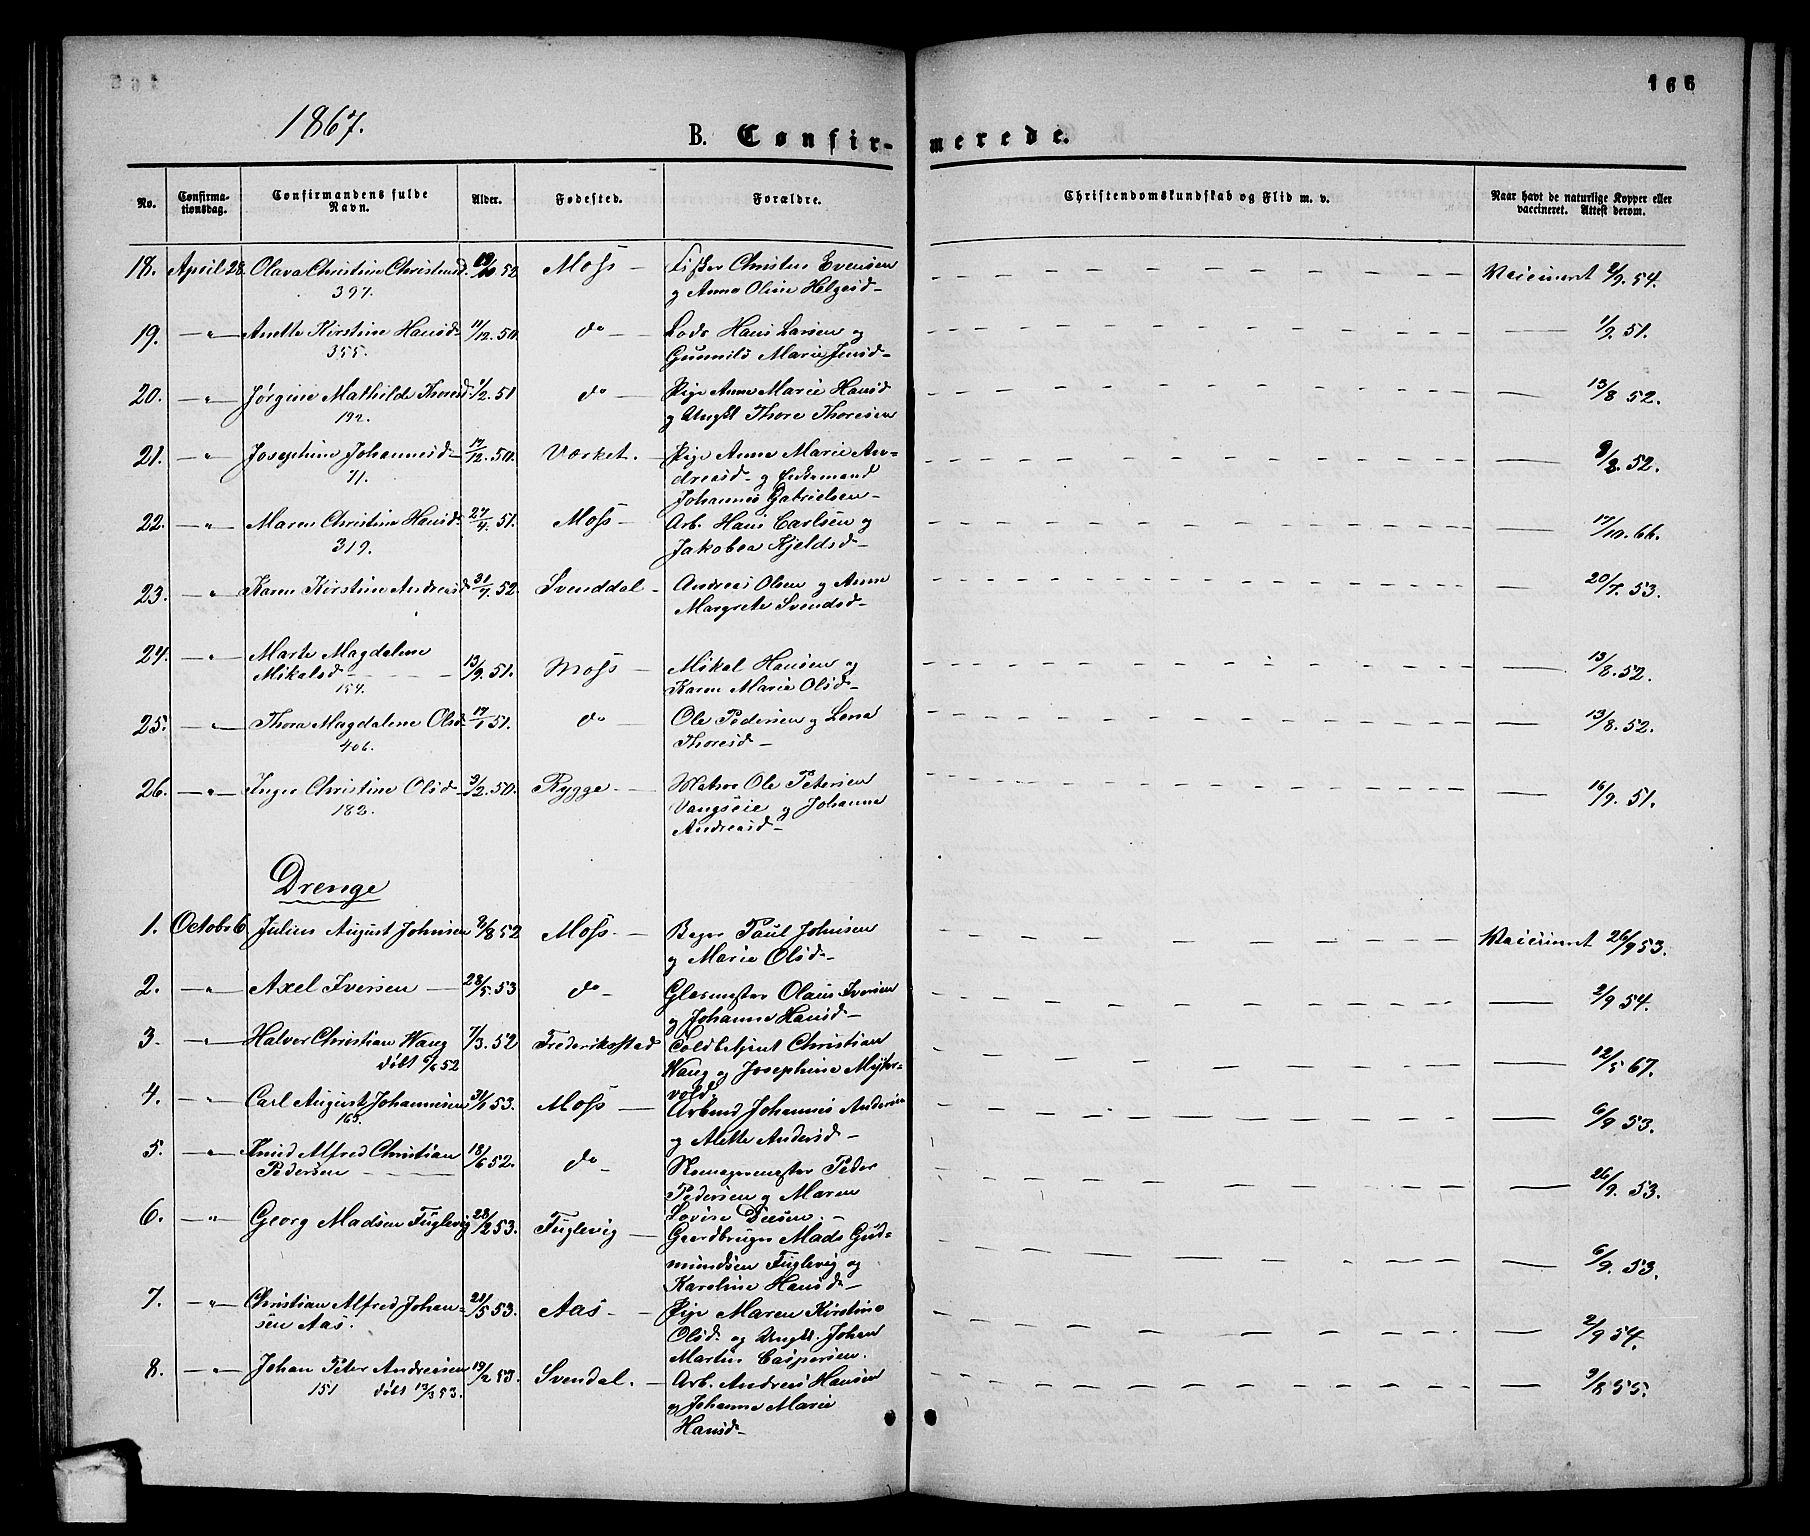 166
1867.
B. Confir-merede.
No. Confirma-tionsdag. Confirmandens fulde Navn. Alder. Fødested. Forældre. Christendomskundskab og Flid m. v. Naar havt de naturlige Kopper eller vaccineret. Attest derom.
18. April 28. Olava Christine Christensd. 19/10 52 Moss Christen Evensen Vaccineret 2/9. 54.
397. og Anna Oline Helgesd
19. " Anette Kirstine Hansd 11/12. 50. do Lods Hans Larsen og 1/9. 51.
355. Gunnild Marie Jensd
20. " Jørgine Mathilde Thoresd. 1/2. 51 do Pige Anne Marie Hansd 13/8 52.
192. og Ungkl Thore Thoresen
21. " Josephine Johannesd 17/12. 50. Værket. Pige Anne Marie An- 9/8. 52.
71. dreasd og Enkemand
Johannes Gabrielsen
22. " Maren Christine Hansd. 27/4. 51. Moss Arb. Hans Carlsen og 17/10. 66.
319. Jakobea Kjeldsd
23. " Karen Kirstine Andreasd 31/7. 52. Svenddal Andreas Olsen og Anne 20/7. 53.
Margrete Svendsd
24. " Marte Magdalene
Mikalsd 13/9. 51. Moss Mikal Hansen og 13/8. 52.
154. Karen Marie Olsd
25. " Thora Magdalene Olsd 17/1 51. do Ole Pedersen og Lena 13/8. 52.
406. Thoresd
26. " Inger Christine Olsd 3/12. 50. Rygge Matros Ole Petersen 16/9. 51.
182. Vangseie og Johanne
Andreasd
Drenge
1. Octobr 6 Julius August Johnsen 9/8 52 Moss. Bager Paul Johnsen Vaccineret 26/9 53.
og Marie Olsd
2. " Axel Iversen 28/5. 53 do Glasmester Olaus Iversen 2/9 54.
og Johanne Hansd
3. " Halvor Christian Wang 7/3. 52 Frederiksstad Toldbetjent Christian 12/5 67.
døbt 6/6 52 Wang og Josephine Myhr-
vold,
4. " Carl August Johannesen 31/1 53. Moss Arbmd Johannes Andersen 6/9 53.
165. og Alette Andersd
5. " Knud Alfred Christian 18/6 52. do
Pedersen Peder 26/9. 53.
Pedersen og Maren
Lovise
6. " Georg Madsen Fuglevig 28/2 53. Fuglevig Gaardbruger Mads Gud- 6/9. 53.
mundsen Fuglevig og
Karoline Hansd
7. " Christian Alfred Johan- 21/5 53. Aas Pige Maren Kirstine 2/9 54.
sen Aas. Olsd. og Ungkl. Johan
Martin Caspersen.
8. " Johan Peter Andreasen 19/2 53. Svendal. Arb. Andreas Hansen 9/8 55.
151 døbt 13/3 53. og Johanne Marie
Hansd